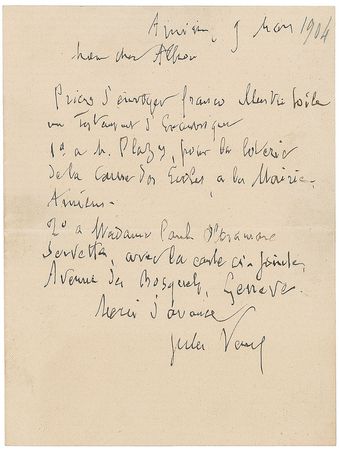 Amiens, 9 Mars 1904
Mon cher
Prière d'envoyer franco
un Testament d'Excentrique
1º à M. Plazy, pour la loterie
de la Caisse des Ecoles, à la Mairie,
Amiens.
2º à Madame
Servette, avec la carte ci-jointe,
Avenue des Bosquets, Genève.
Merci d'avance
Jules Verne